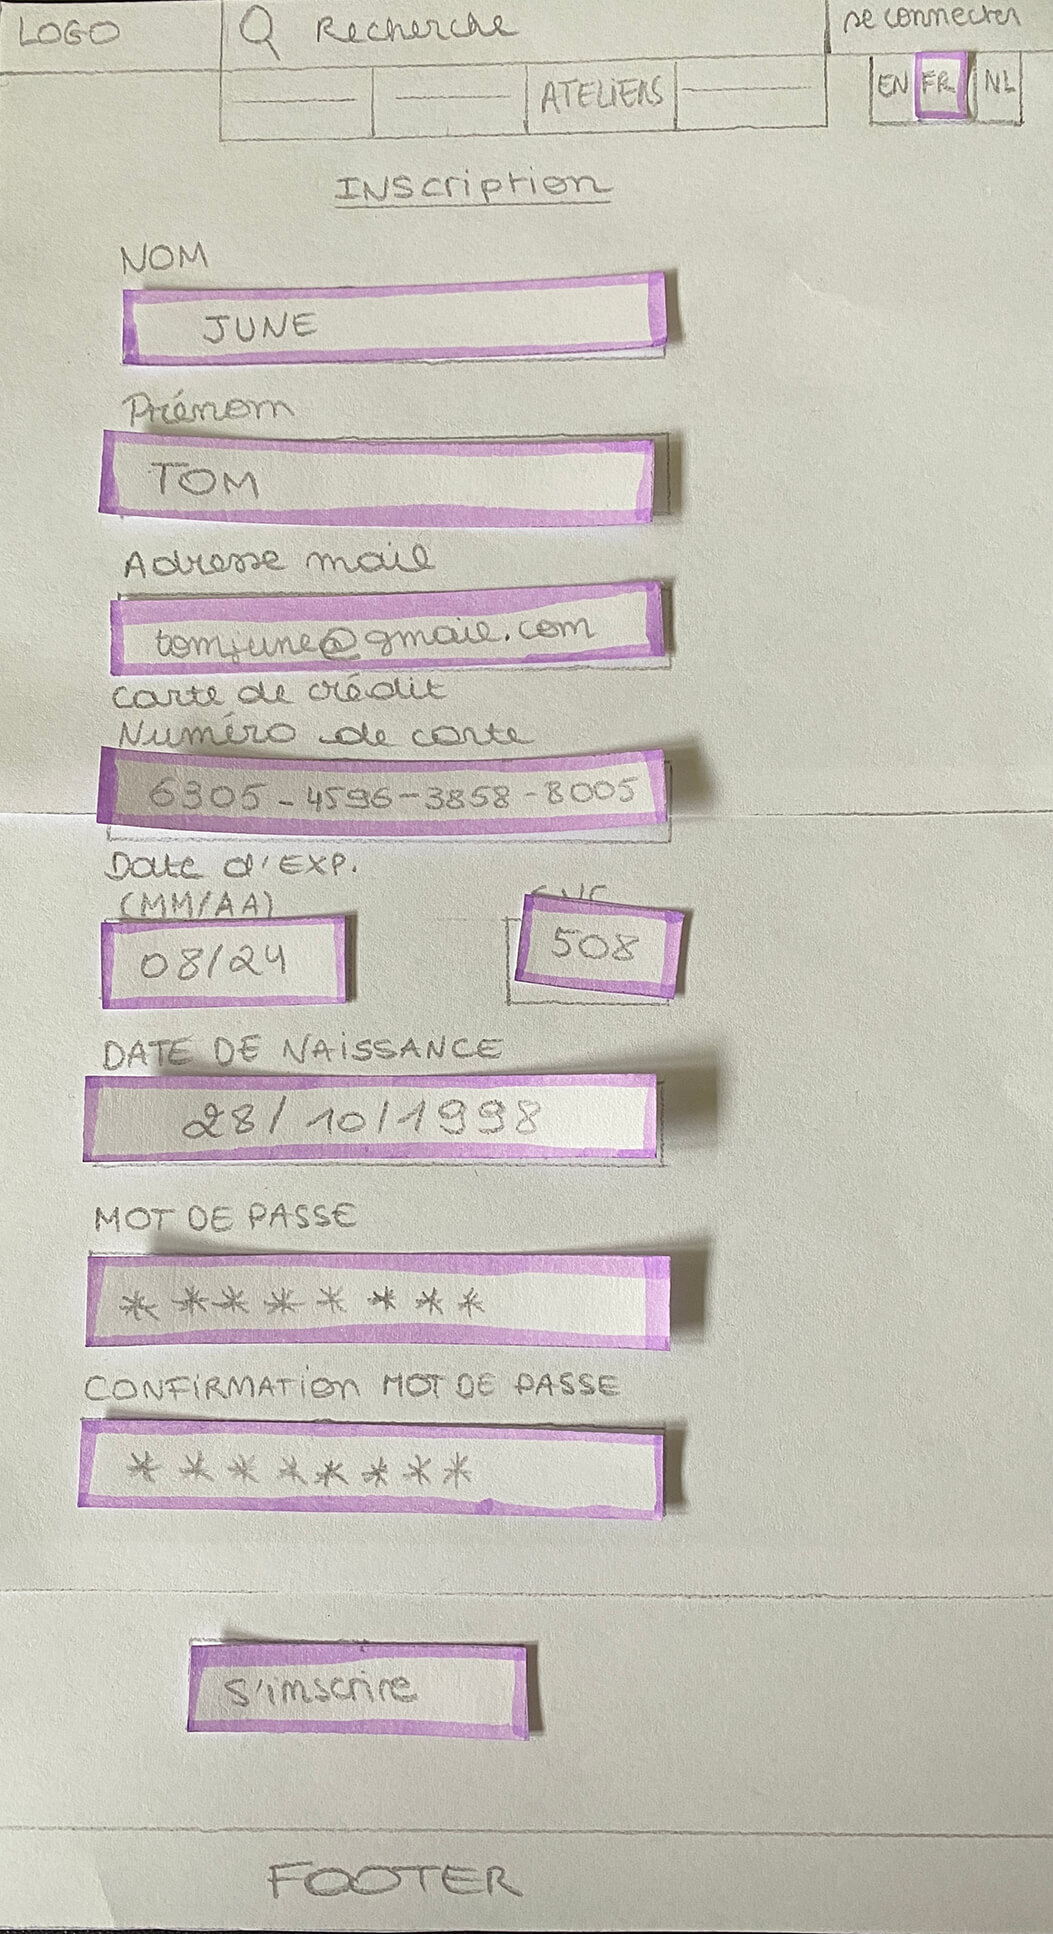 LOGO
Recherche
se connecter
ATELIERS
EN FR NL
INScription
NOM
JUNE
Prénom
TOM
Adresse mail
tomjune@gmail.com
Carte de crédit
Numéro de carte
6305-4596-3858-8005
Date d'EXP.
(MM/AA)
CVC
08/24
508
DATE DE NAiSSANCE
28/10/1998
MOT DE PASSE
********
CONFiRMATion MOT DE PASSE
********
S'inscrire
FOOTER